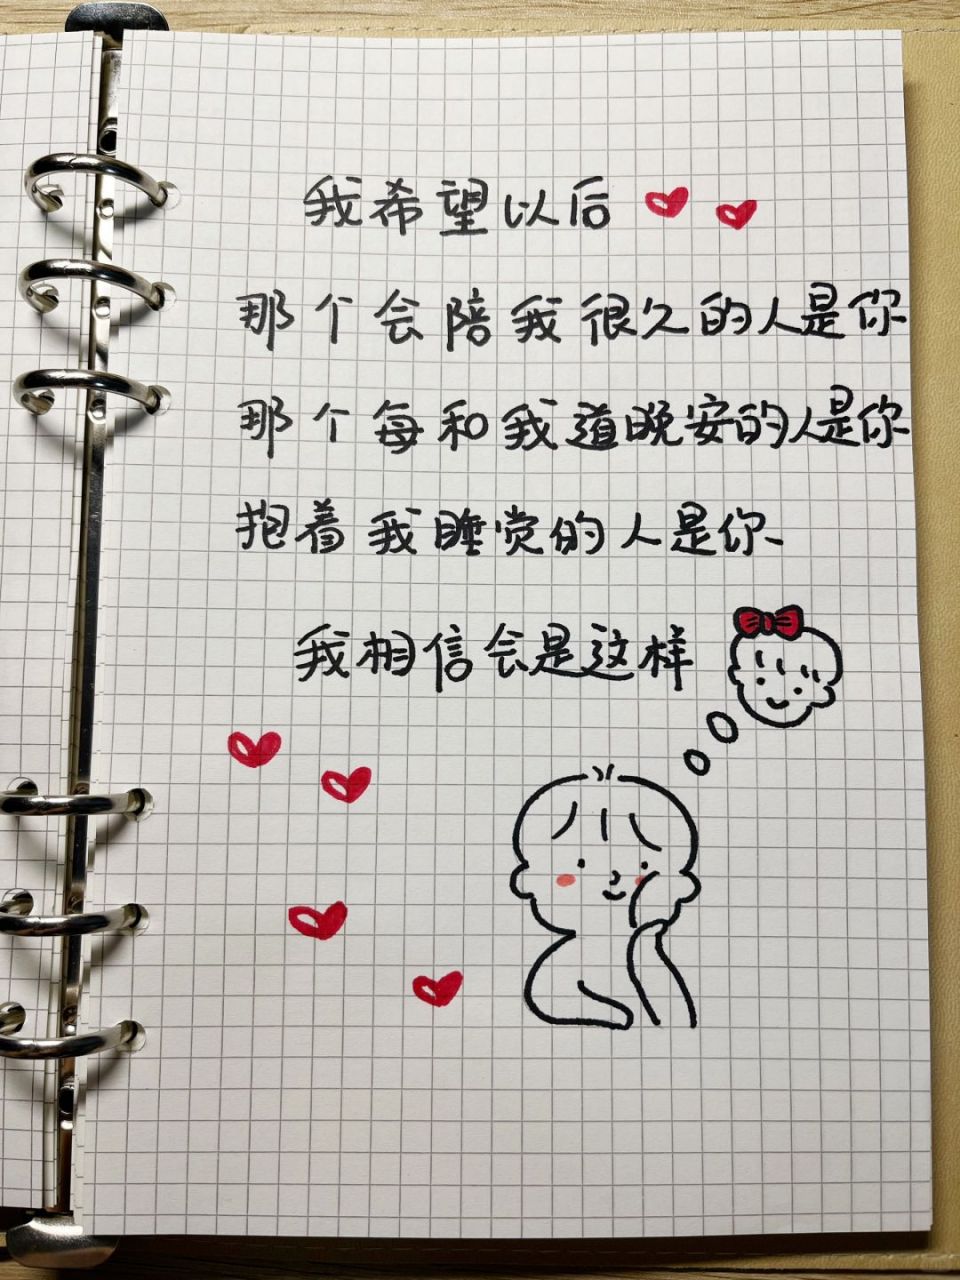 我希望以后
那个会陪我很久的人是你
那个每和我道晚安的人是你
抱着我睡觉的人是你
我相信会是这样